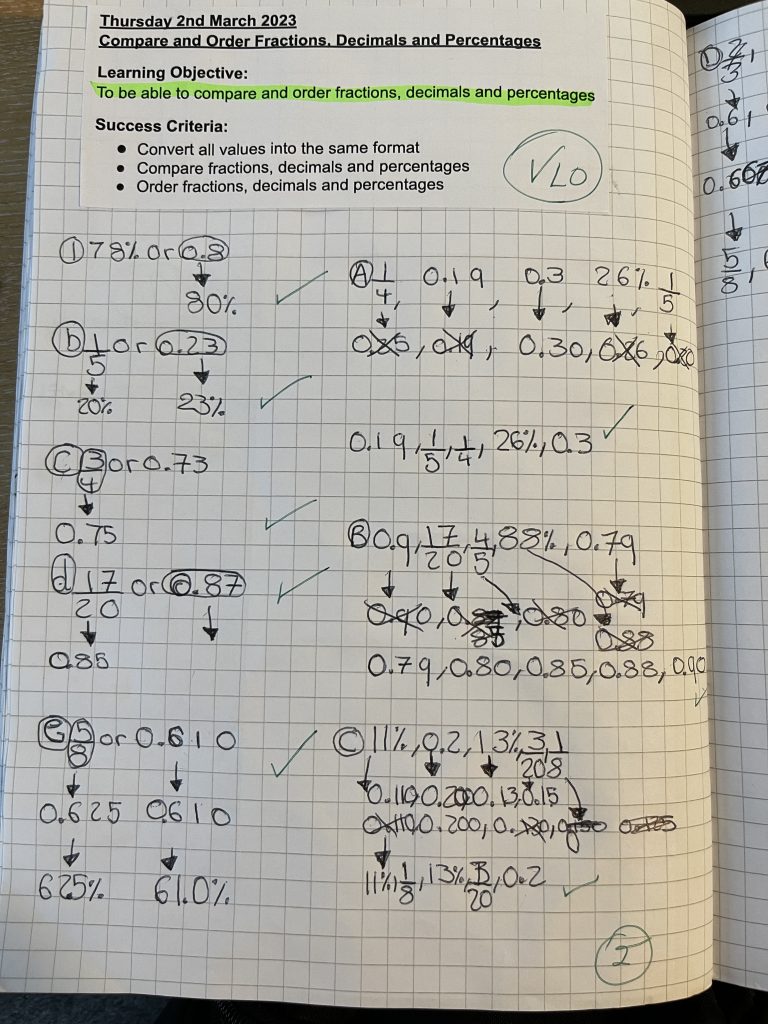 Thursday 2nd March 2023
Compare and Order Fractions, Decimals and Percentages
Learning Objective:
To be able to compare and order fractions, decimals and percentages
Success Criteria:
• Convert all values into the same format
• Compare fractions, decimals and percentages
• Order fractions, decimals and percentages
√LO
1 78% or 0.8
80%
b 1/5 or 0.23
20% 23%
C 3/4 or 0.73
0.75
d 17/20 or 0.87
0.85
e 5/8 or 0.610
0.625 0.610
625% 61.0%
A 1/4, 0.19, 0.3, 26%, 1/5
0.25, 0.19, 0.30, 0.26, 0.20
0.19, 1/5, 1/4, 26%, 0.3
B 0.9, 17/20, 4/5, 88%, 0.79
0.79
0.90, 0.85, 0.80
0.88
0.79, 0.80, 0.85, 0.88, 0.90
C 11%, 0.2, 13%, 3/20, 1/8
0.110, 0.200, 0.13, 0.15
0.110, 0.200, 0.130, 0.125
11%, 1/8, 13%, 3/20, 0.2
2
D 2/3,
0.61
0.666
5/8,